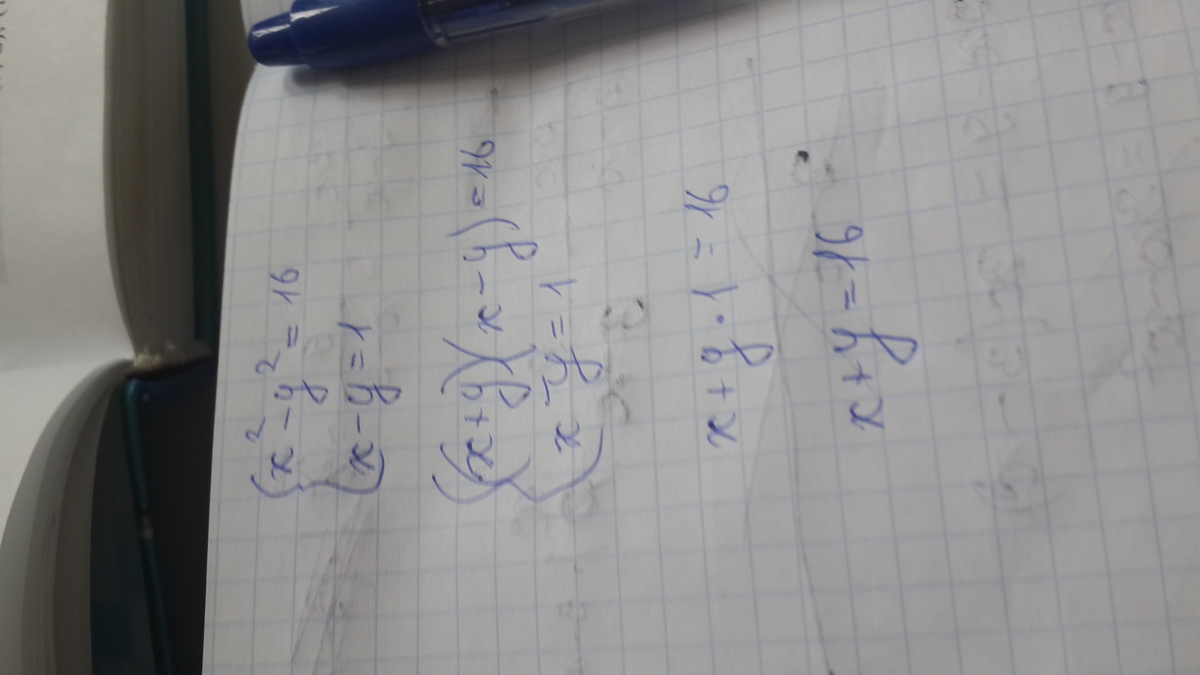 x² - y² = 16
x - y = 1
(x + y)(x - y) = 16
x - y = 1
x + y · 1 = 16
x + y = 16